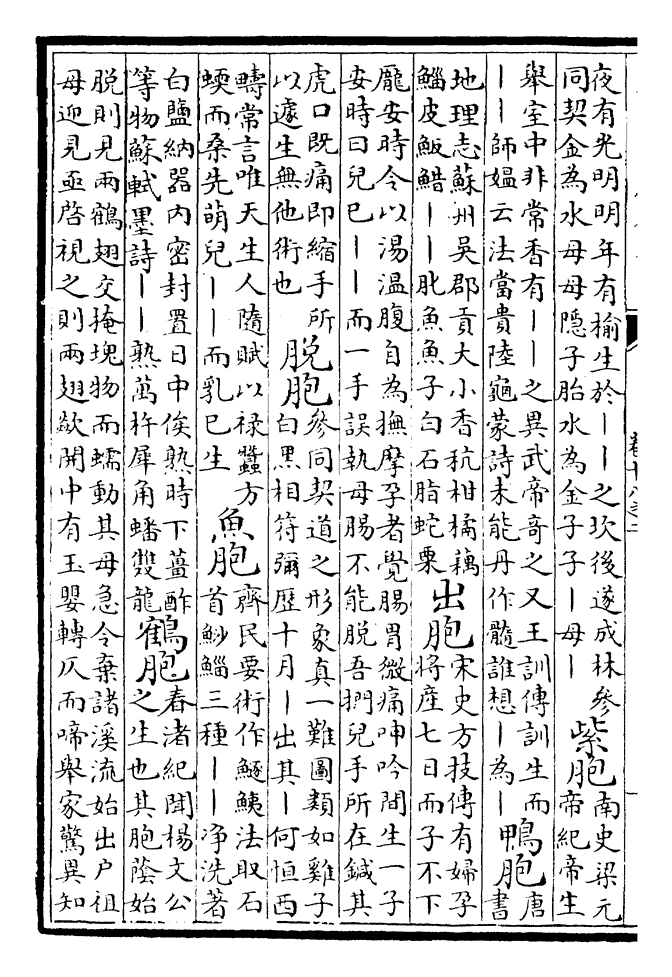 夜有光明明年有榆生於——之坎後遂成林參
同契金為水母母隱子胎水為金子子—母—
紫胞
南史梁元
帝紀帝生
舉室中非常香有——之異武帝奇之又王訓傳訓生而
——師媼云法當貴陸龜蒙詩未能丹作髓誰想—為—
鴨胞
唐
書
地理志蘇州吳郡貢大小香秔柑橘藕
鯔皮魬䱜——肶魚魚子白石脂蛇粟
出胞
宋史方技傳有婦孕
將産七日而子不下
龎安時令以湯溫腹自為撫摩孕者覺腸胃微痛呻吟間生一子
安時曰兒已——而一手誤執母腸不能脱吾捫兒手所在鍼其
虎口既痛即縮手所
以遽生無他術也
脱胞
參同契道之形象真一難圖類如雞子
白黑相符彌歷十月—出其—何恒西
疇常言唯天生人隨賦以禄蠶方
蝡而桑先萌兒——而乳已生
魚胞
齊民要術作鱁鮧法取石
首魦鯔三種——净洗著
白鹽納器内密封置日中俟熟時下薑酢
等物蘇軾墨詩——熟萬杵犀角蟠雙龍
鶴胞
春渚紀聞楊文公
之生也其胞䕃始
脱則見兩鶴翅交掩塊物而蠕動其母急令棄諸溪流始出户祖
母迎見亟啓視之則兩翅歘開中有玉嬰轉仄而啼舉家驚異知